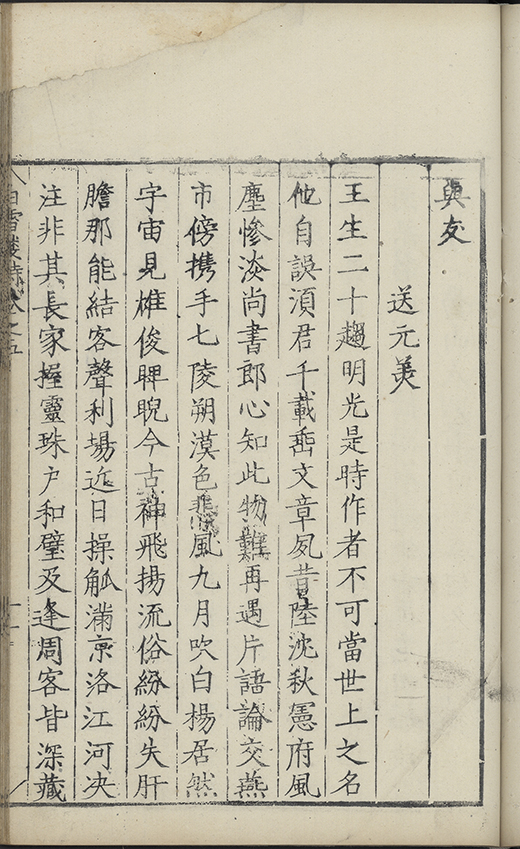 與友
送元美
王生二十趨明光是時作者不可當世上之名
他自誤湏君千載垂文章夙昔陸沈秋憲府風
塵慘淡尚書郎心知此物難再遇片語論交燕
市傍携手七陵朔漠色悲風九月吹白楊居然
宇宙見雄俊睥睨今古神飛揚流俗紛紛失肝
膽那能結客聲利場近日操觚滿京洛江河决
注非其長家握靈珠户和璧及逢周客皆深藏
白雪樓詩卷之五